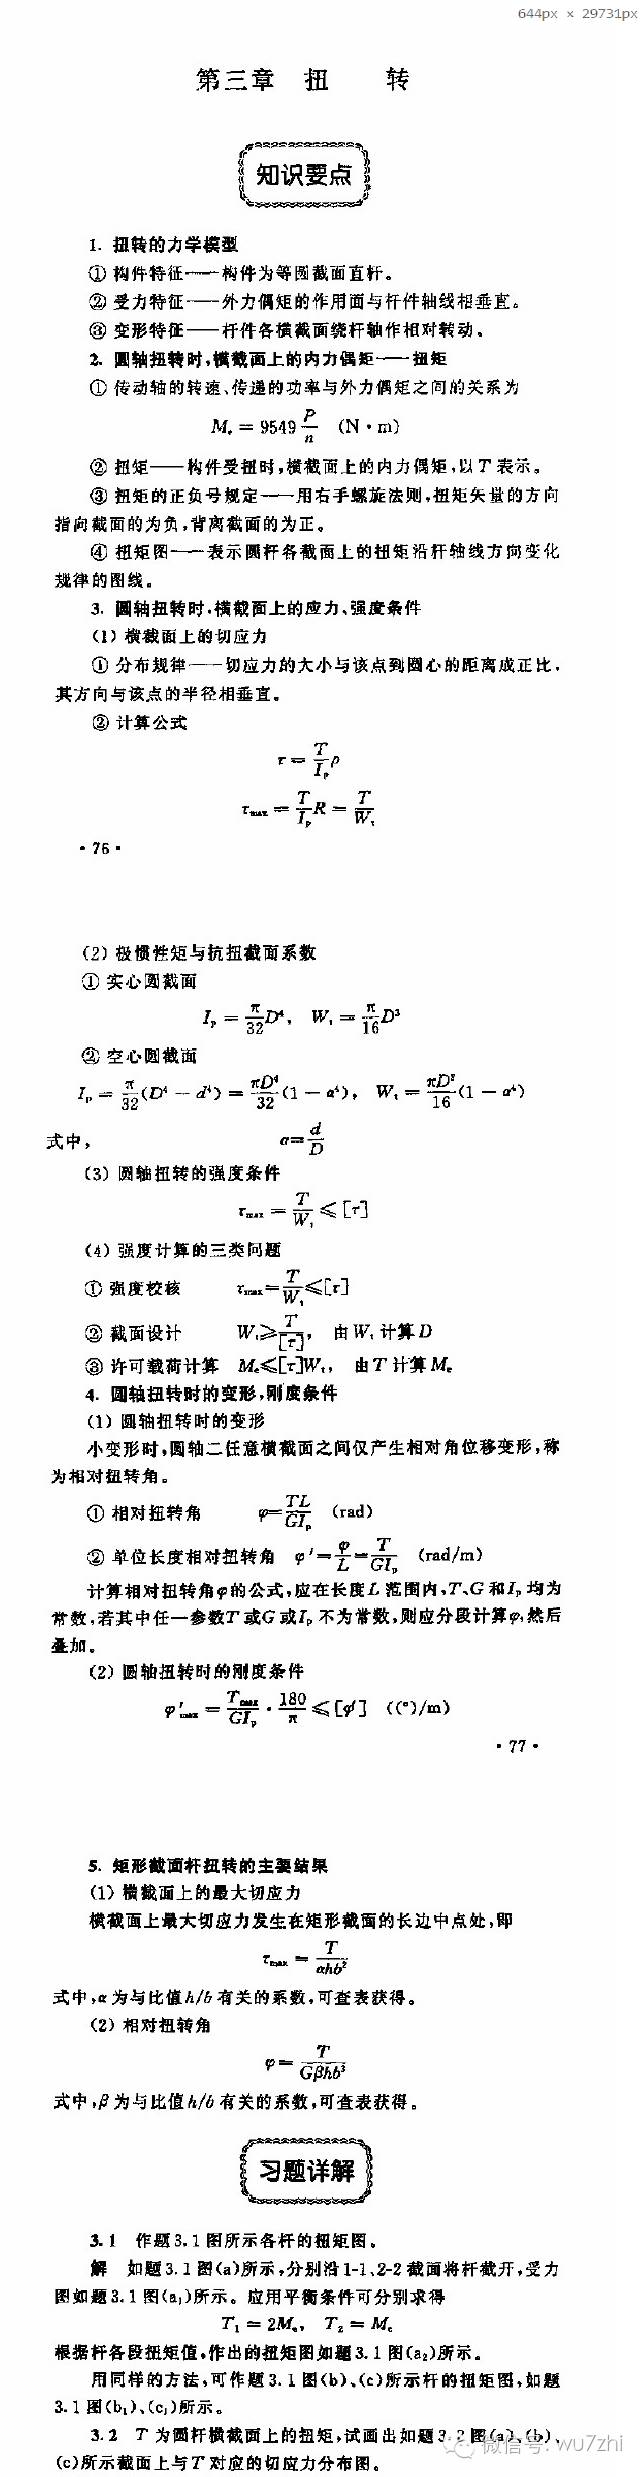 644px × 29731px
第三章 扭 转
知识要点
1. 扭转的力学模型
① 构件特征——构件为等圆截面直杆。
② 受力特征——外力偶矩的作用面与杆件轴线相垂直。
③ 变形特征——杆件各横截面绕杆轴作相对转动。
2. 圆轴扭转时,横截面上的内力偶矩——扭矩
① 传动轴的转速、传递的功率与外力偶矩之间的关系为
Mₑ = 9549 P/n (N·m)
② 扭矩——构件受扭时,横截面上的内力偶矩,以 T 表示。
③ 扭矩的正负号规定——用右手螺旋法则,扭矩矢量的方向
指向截面的为负,背离截面的为正。
④ 扭矩图——表示圆杆各截面上的扭矩沿杆轴线方向变化
规律的图线。
3. 圆轴扭转时,横截面上的应力、强度条件
(1) 横截面上的切应力
① 分布规律——切应力的大小与该点到圆心的距离成正比,
其方向与该点的半径相垂直。
② 计算公式
τ = T/Iₚ ρ
τmax = T/Iₚ R = T/Wₜ
·76·
(2) 极惯性矩与抗扭截面系数
① 实心圆截面
Iₚ = π/32 D⁴, Wₜ = π/16 D³
② 空心圆截面
Iₚ = π/32 (D⁴ − d⁴) = πD⁴/32 (1 − α⁴), Wₜ = πD³/16 (1 − α⁴)
式中, α = d/D
(3) 圆轴扭转的强度条件
τmax = T/Wₜ ≤ [τ]
(4) 强度计算的三类问题
① 强度校核 τmax = T/Wₜ ≤ [τ]
② 截面设计 Wₜ ≥ T/[τ], 由 Wₜ 计算 D
③ 许可载荷计算 Mₑ ≤ [τ]Wₜ, 由 T 计算 Mₑ
4. 圆轴扭转时的变形,刚度条件
(1) 圆轴扭转时的变形
小变形时,圆轴二任意横截面之间仅产生相对角位移变形,称
为相对扭转角。
① 相对扭转角 φ = TL/GIₚ (rad)
② 单位长度相对扭转角 φ′ = φ/L = T/GIₚ (rad/m)
计算相对扭转角φ的公式,应在长度 L 范围内,T、G 和 Iₚ 均为
常数,若其中任一参数 T 或 G 或 Iₚ 不为常数,则应分段计算φ,然后
叠加。
(2) 圆轴扭转时的刚度条件
φ′max = Tmax/GIₚ · 180/π ≤ [φ′] ((°)/m)
·77·
5. 矩形截面杆扭转的主要结果
(1) 横截面上的最大切应力
横截面上最大切应力发生在矩形截面的长边中点处,即
τmax = T/αhb²
式中,α 为与比值 h/b 有关的系数,可查表获得。
(2) 相对扭转角
φ = T/Gβhb³
式中,β 为与比值 h/b 有关的系数,可查表获得。
习题详解
3.1 作题 3.1 图所示各杆的扭矩图。
解 如题 3.1 图(a)所示,分别沿 1-1、2-2 截面将杆截开,受力
图如题 3.1 图(a₁)所示。应用平衡条件可分别求得
T₁ = 2Mₑ, T₂ = Mₑ
根据杆各段扭矩值,作出的扭矩图如题 3.1 图(a₂)所示。
用同样的方法,可作题 3.1 图(b)、(c)所示杆的扭矩图,如题
3.1 图(b₁)、(c₁)所示。
3.2 T 为圆杆横截面上的扭矩,试画出如题 3.2 图(a)、(b)、
(c)所示截面上与 T 对应的切应力分布图。
微信号: wu7zhi